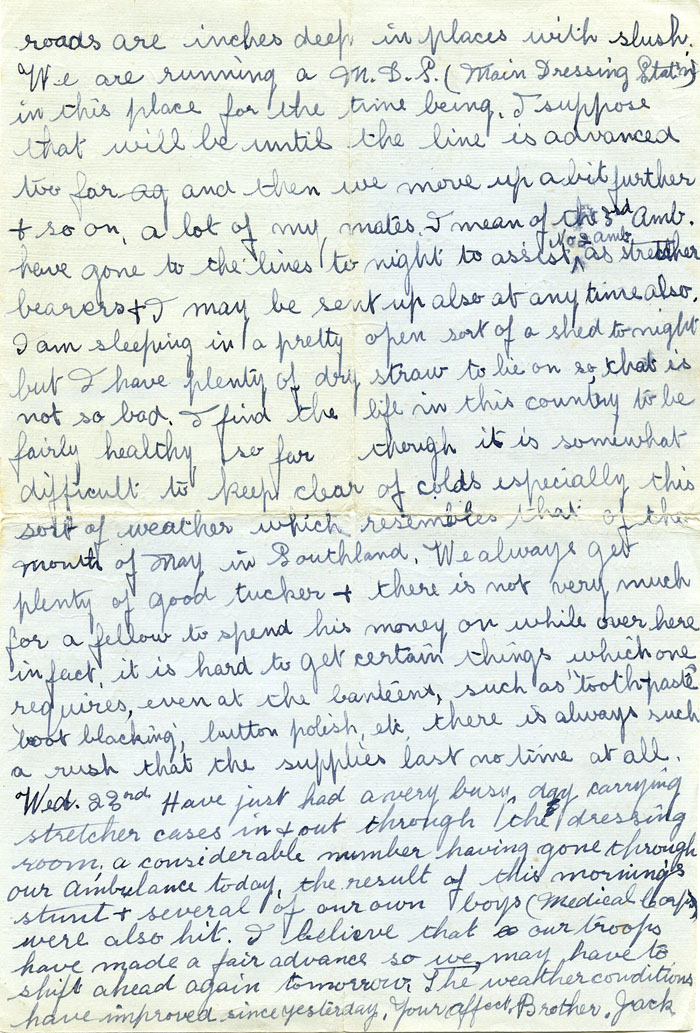 roads are inches deep in places with slush.
We are running a M.D.S. (Main Dressing Stat'n)
in this place for the time being. I suppose
that will be until the line is advanced
too far and then we move up a bit further
& so on, a lot of my mates I mean of the 3rd Amb.
No 2 amb.
have gone to the lines to night to assist as stretcher
bearers & I may be sent up also at any time also.
I am sleeping in a pretty open sort of a shed to night
but I have plenty of dry straw to lie on so that is
not so bad. I find the life in this country to be
fairly healthy so far though it is somewhat
difficult to keep clear of colds especially this
sort of weather which resembles that of the
month of May in Southland. We always get
plenty of good tucker & there is not very much
for a fellow to spend his money on while over here
in fact it is hard to get certain things which one
requires, even at the canteens, such as "tooth paste"
"boot blacking", button polish, etc, there is always such
a rush that the supplies last no time at all.
Wed. 23rd Have just had a very busy day carrying
stretcher cases in & out through the dressing
room, a considerable number having gone through
our ambulance today, the result of this morning's
stunt & several of our own boys (Medical Corps)
were also hit. I believe that our troops
have made a fair advance so we may have to
shift ahead again tomorrow. The weather conditions
have improved since yesterday. Your affect. Brother. Jack